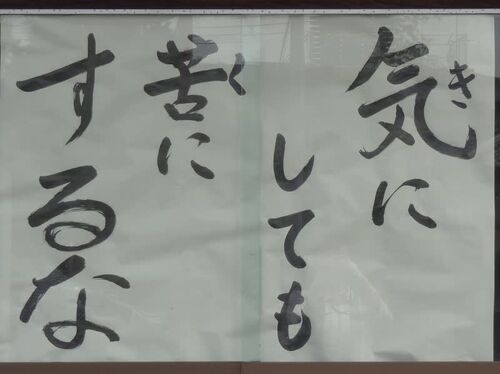 気に
しても
苦に
するな
き
く